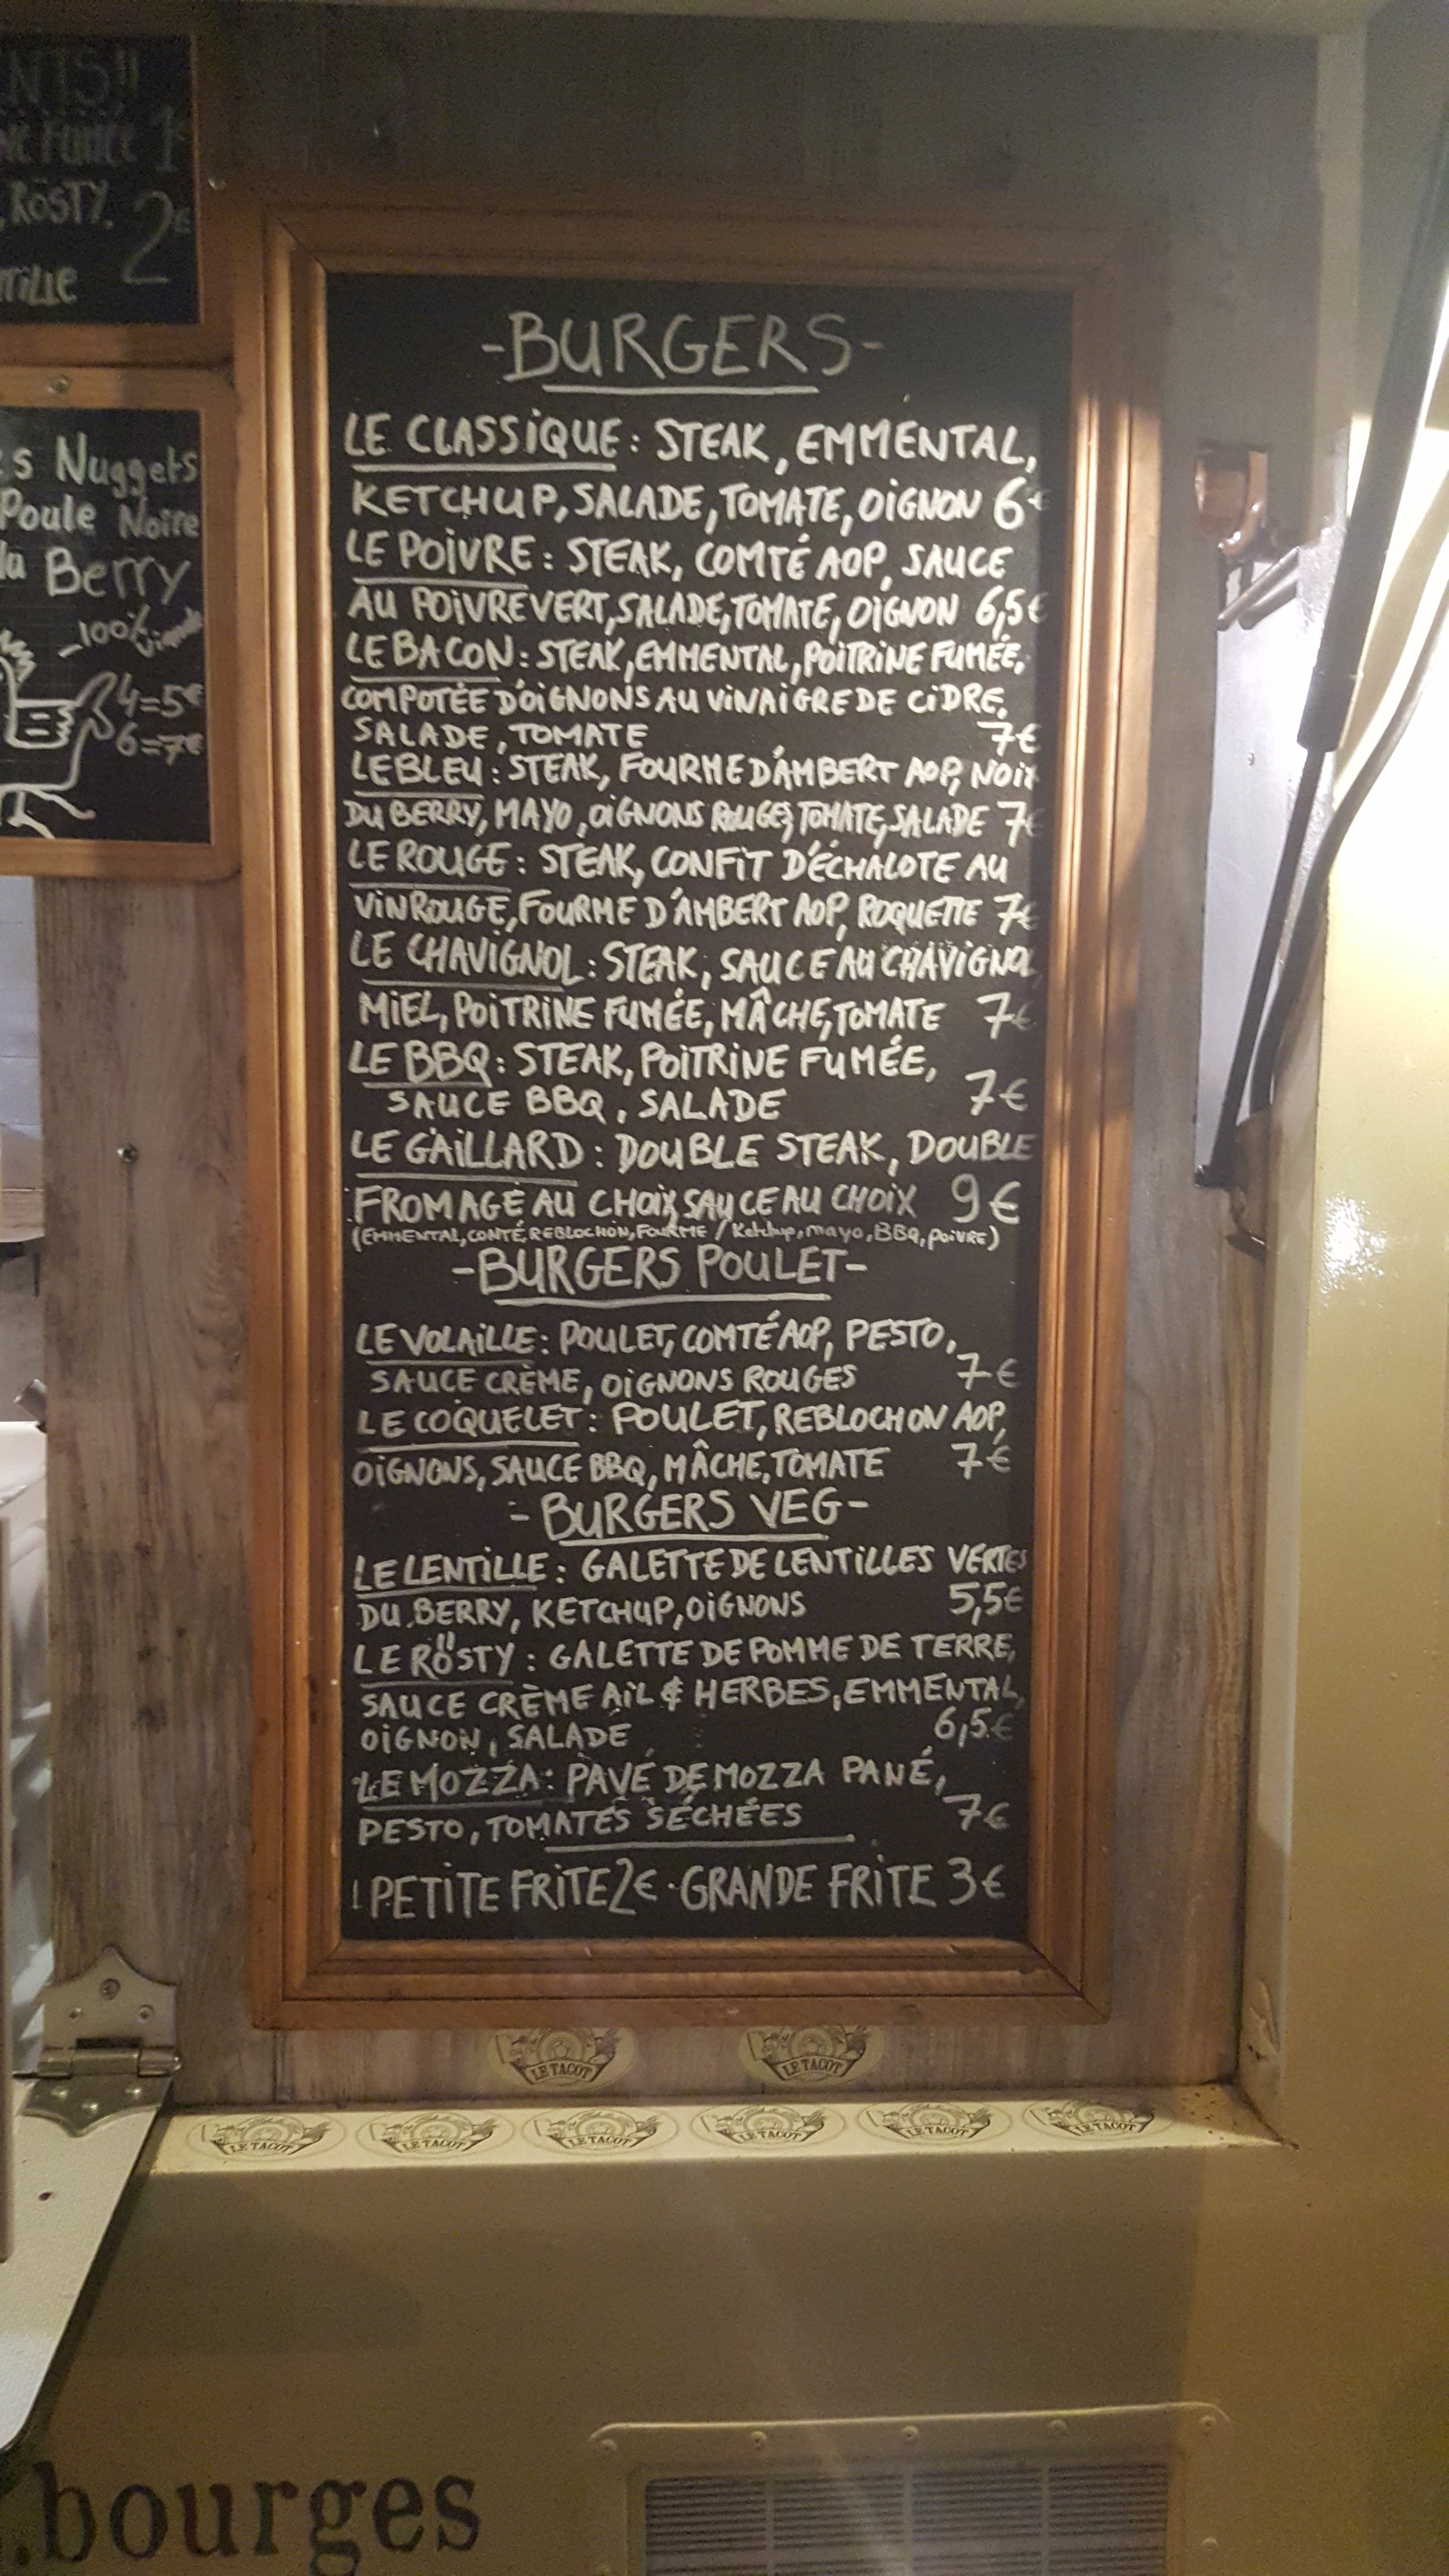 NTS!!
FUMÉE 1€
RÖSTY. 2€
s Nuggets
Poule Noire
Berry
100%
4=5€
6=7€
-BURGERS-
LE CLASSIQUE: STEAK, EMMENTAL,
KETCHUP, SALADE, TOMATE, OIGNON 6€
LE POIVRE: STEAK, COMTÉ AOP, SAUCE
AU POIVRE VERT, SALADE, TOMATE, OIGNON 6,5€
LE BACON: STEAK, EMMENTAL, POITRINE FUMÉE,
COMPOTÉE D'OIGNONS AU VINAIGRE DE CIDRE,
SALADE, TOMATE 7€
LE BLEU: STEAK, FOURME D'AMBERT AOP, NOIX
DU BERRY, MAYO, OIGNONS ROUGES, TOMATE, SALADE 7€
LE ROUGE: STEAK, CONFIT D'ÉCHALOTE AU
VIN ROUGE, FOURME D'AMBERT AOP, ROQUETTE 7€
LE CHAVIGNOL: STEAK, SAUCE AU CHAVIGNOL
MIEL, POITRINE FUMÉE, MÂCHE, TOMATE 7€
LE BBQ: STEAK, POITRINE FUMÉE,
SAUCE BBQ, SALADE 7€
LE GAILLARD: DOUBLE STEAK, DOUBLE
FROMAGE AU CHOIX, SAUCE AU CHOIX 9€
(EMMENTAL, CONTÉ, REBLOCHON, FOURME / Ketchup, mayo, BBQ, POIVRE)
-BURGERS POULET-
LE VOLAILLE: POULET, COMTÉ AOP, PESTO,
SAUCE CRÈME, OIGNONS ROUGES 7€
LE COQUELET: POULET, REBLOCHON AOP,
OIGNONS, SAUCE BBQ, MÂCHE, TOMATE 7€
-BURGERS VEG-
LE LENTILLE: GALETTE DE LENTILLES VERTES
DU BERRY, KETCHUP, OIGNONS 5,5€
LE RÖSTY: GALETTE DE POMME DE TERRE,
SAUCE CRÈME AIL & HERBES, EMMENTAL,
OIGNON, SALADE 6,5€
LE MOZZA: PAVÉ DE MOZZA PANÉ,
PESTO, TOMATES SÉCHÉES 7€
PETITE FRITE 2€ · GRANDE FRITE 3€
LE TACOT LE TACOT
LE TACOT LE TACOT LE TACOT LE TACOT LE TACOT LE TACOT
.bourges